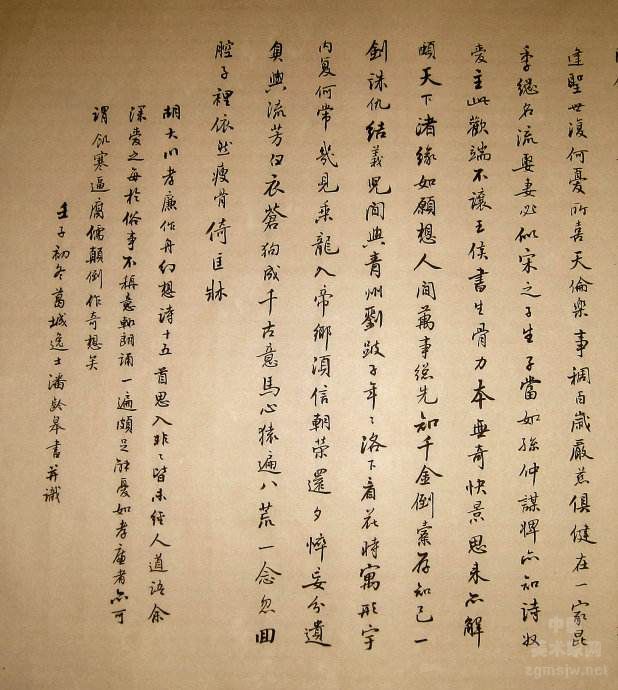 逢聖世復何憂所喜天倫樂事稠百歲嚴慈俱健在一家昆
季總名流娶妻必似宋之子生子當如孫仲謀婢亦知詩奴
愛主此歡端不讓王侯書生骨力本無奇快景思來亦解
頤天下渚緣如願想人間萬事總先知千金倒橐存知己一
劍誅仇結義兒間與青州劉跛子年〻洛下看花時寓形宇
內复何常幾見乘龍入帝鄉須信朝榮還夕悴妄分遺
臭與流芳白衣蒼狗成千古意馬心猿遍八荒一念忽回
腔子裡依然瘦骨倚匡牀
胡大川孝廉作舟幻想詩十五首思入非〻皆未經人道語余
深愛之每於俗事不稱意輒朗誦一遍頗足解憂如孝廉者亦可
謂飢寒逼腐儒顛倒作奇想矣
壬子初冬葛城逸士潘齡皋書并識
zgmsjw.net